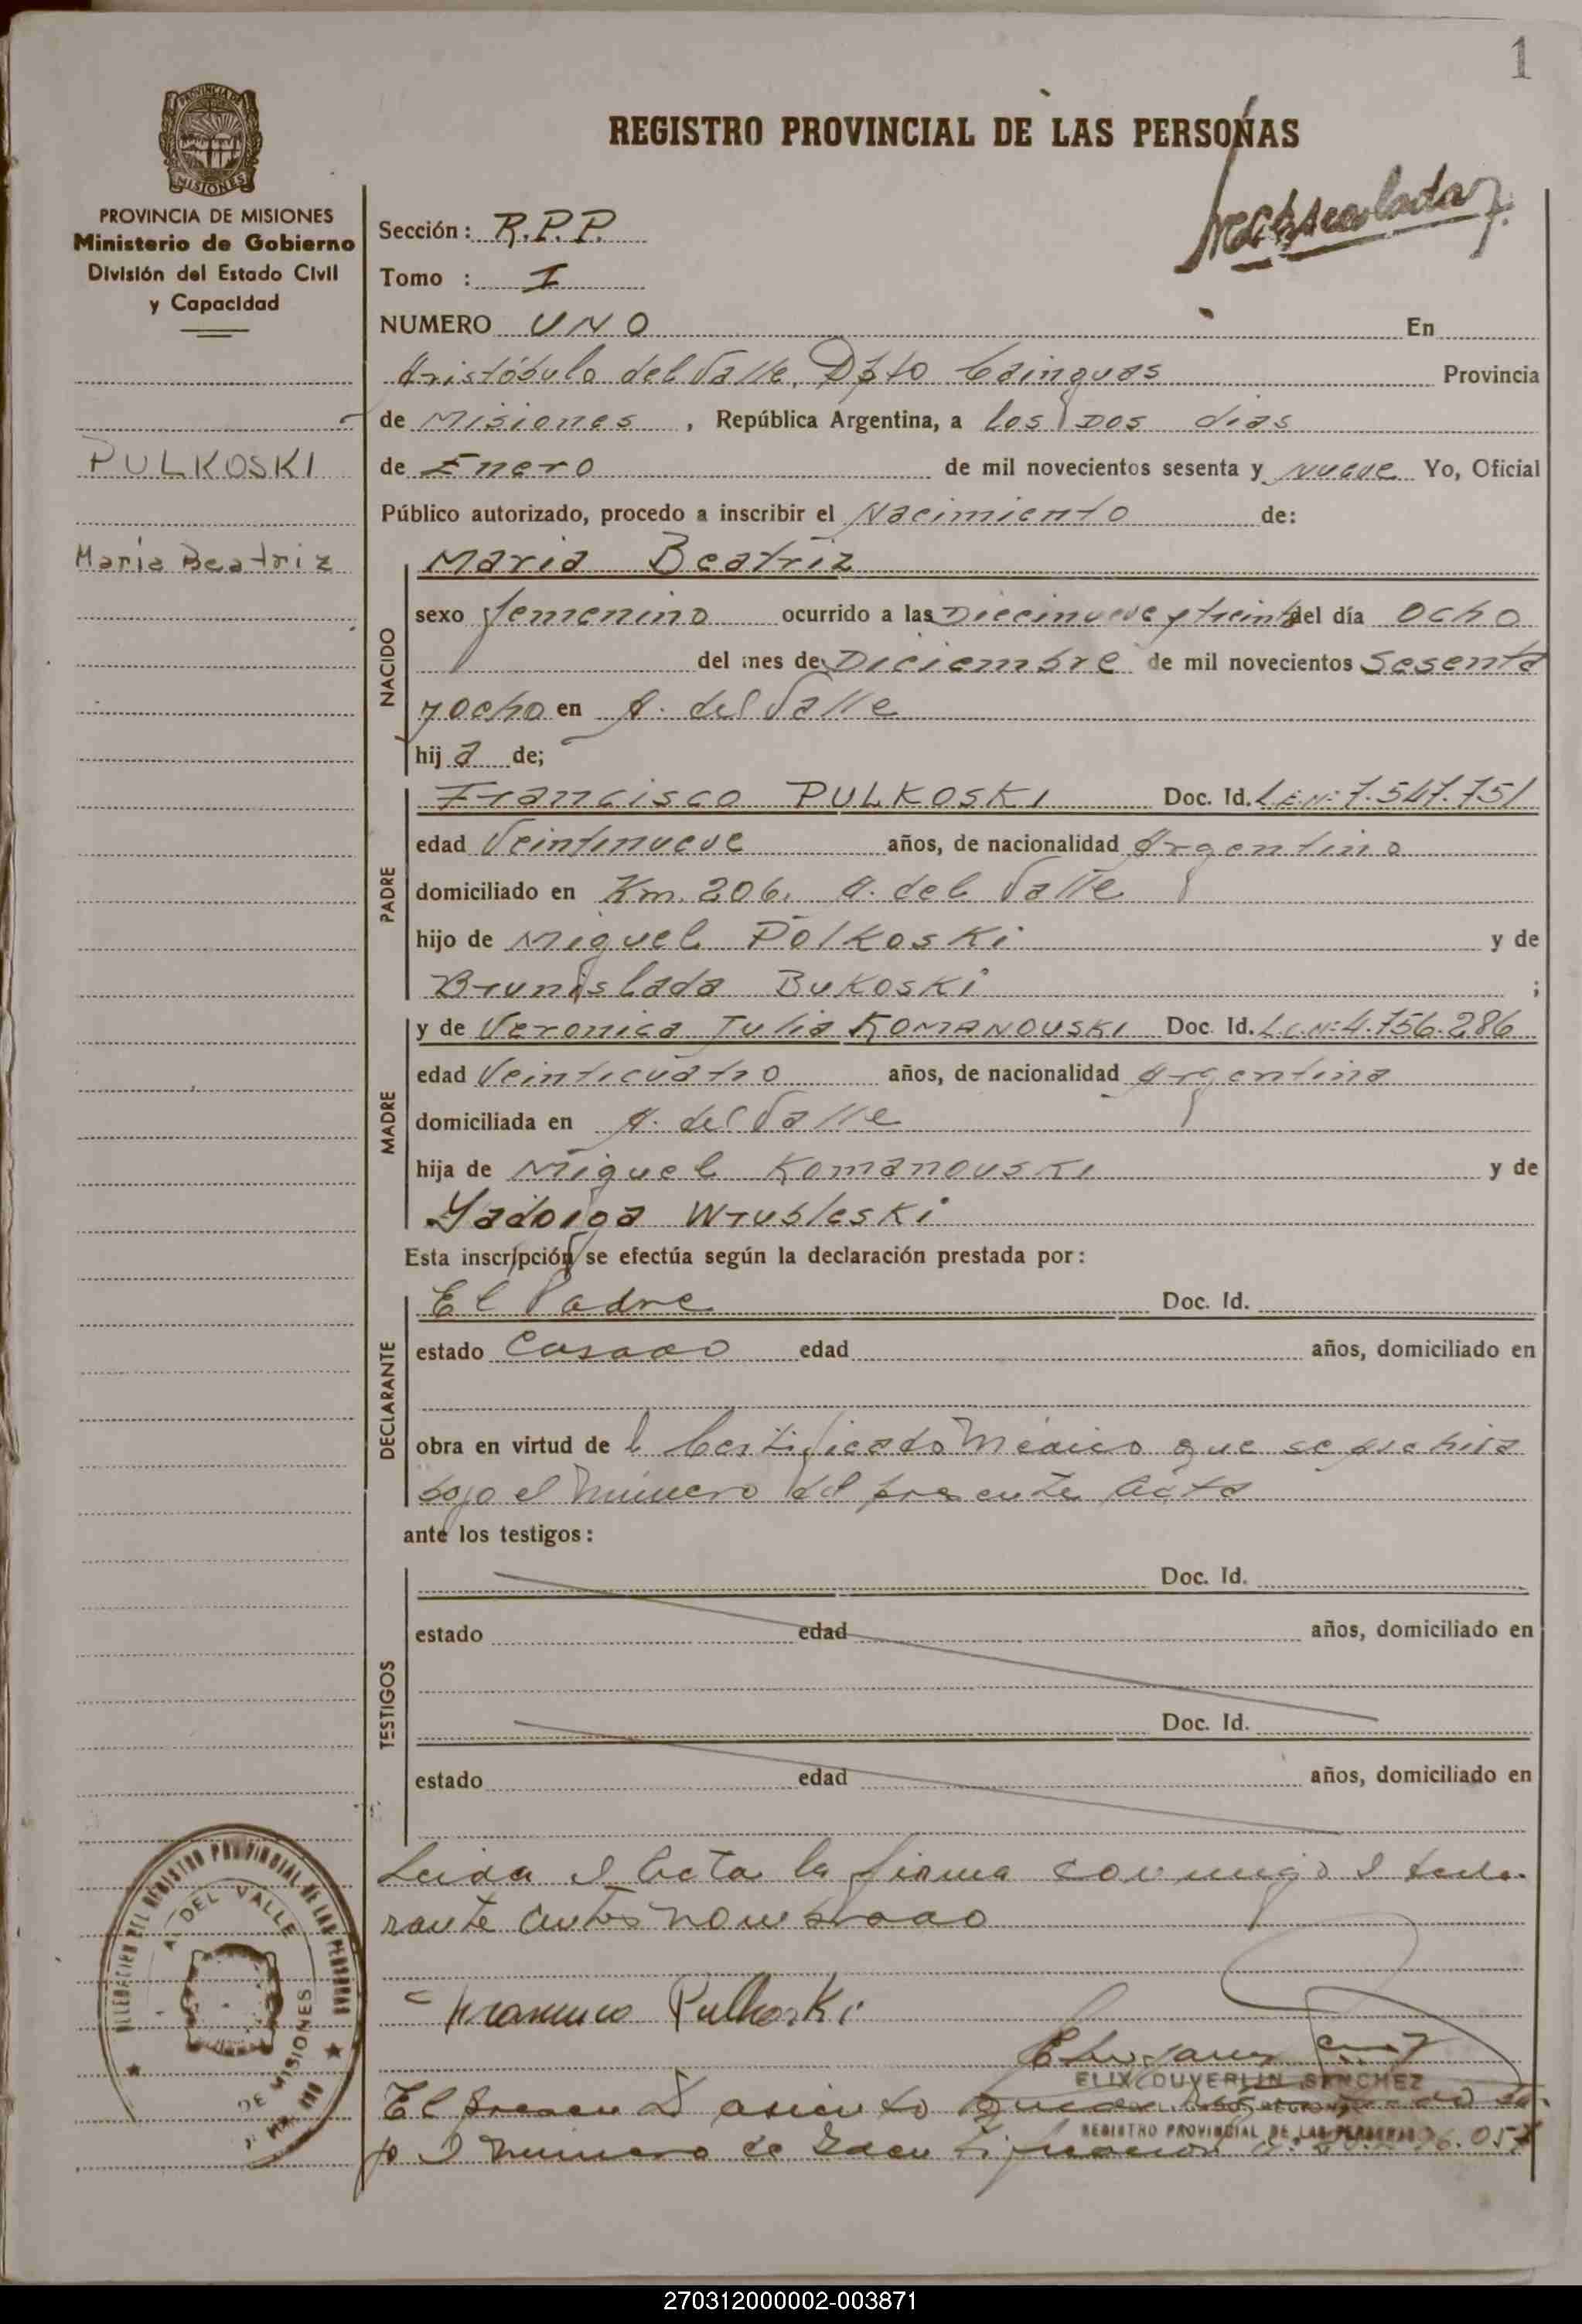 1
REGISTRO PROVINCIAL DE LAS PERSONAS
PROVINCIA DE MISIONES
MISIONES
PROVINCIA DE MISIONES
Ministerio de Gobierno
División del Estado Civil
y Capacidad
PULKOSKI
María Beatriz
Sección: R.P.P.
Tomo : I
NUMERO UNO En
Aristóbulo del Valle, Dpto Cainguas Provincia
de Misiones, República Argentina, a los Dos dias
de Enero de mil novecientos sesenta y nueve Yo, Oficial
Público autorizado, procedo a inscribir el Nacimiento de:
NACIDO
Maria Beatriz
sexo femenino ocurrido a las Diecinueve y treinta del día ocho
del mes de Diciembre de mil novecientos Sesenta
y ocho en A. del Valle
hija de;
PADRE
Francisco PULKOSKI Doc. Id. L.E.Nº 7.547.751
edad Veintinueve años, de nacionalidad Argentino
domiciliado en Km. 206. A. del Valle
hijo de Miguel Polkoski y de
Brunislada Bukoski ;
MADRE
y de Veronica Julia KOMANOUSKI Doc. Id. L.C.Nº 4.756.286
edad Veinticuatro años, de nacionalidad Argentina
domiciliada en A. del Valle
hija de Miguel Komanouski y de
Yadviga Wrubleski
Esta inscripción se efectúa según la declaración prestada por:
DECLARANTE
El Padre Doc. Id.
estado Casado edad años, domiciliado en
obra en virtud del Certificado Médico que se archiva
bajo el número del presente Acta
ante los testigos:
TESTIGOS
Doc. Id.
estado edad años, domiciliado en
Doc. Id.
estado edad años, domiciliado en
Leida el Acta la firma conmigo el decla-
rante antes nombrado
Francisco Pulkoski
ELIX DUVERLIN SANCHEZ
REGISTRO PROVINCIAL DE LAS PERSONAS
El presente asiento ba-
jo el número de Identificación
DEL REGISTRO PROVINCIAL DE LAS PERSONAS
A. DEL VALLE
DE MISIONES
270312000002-003871